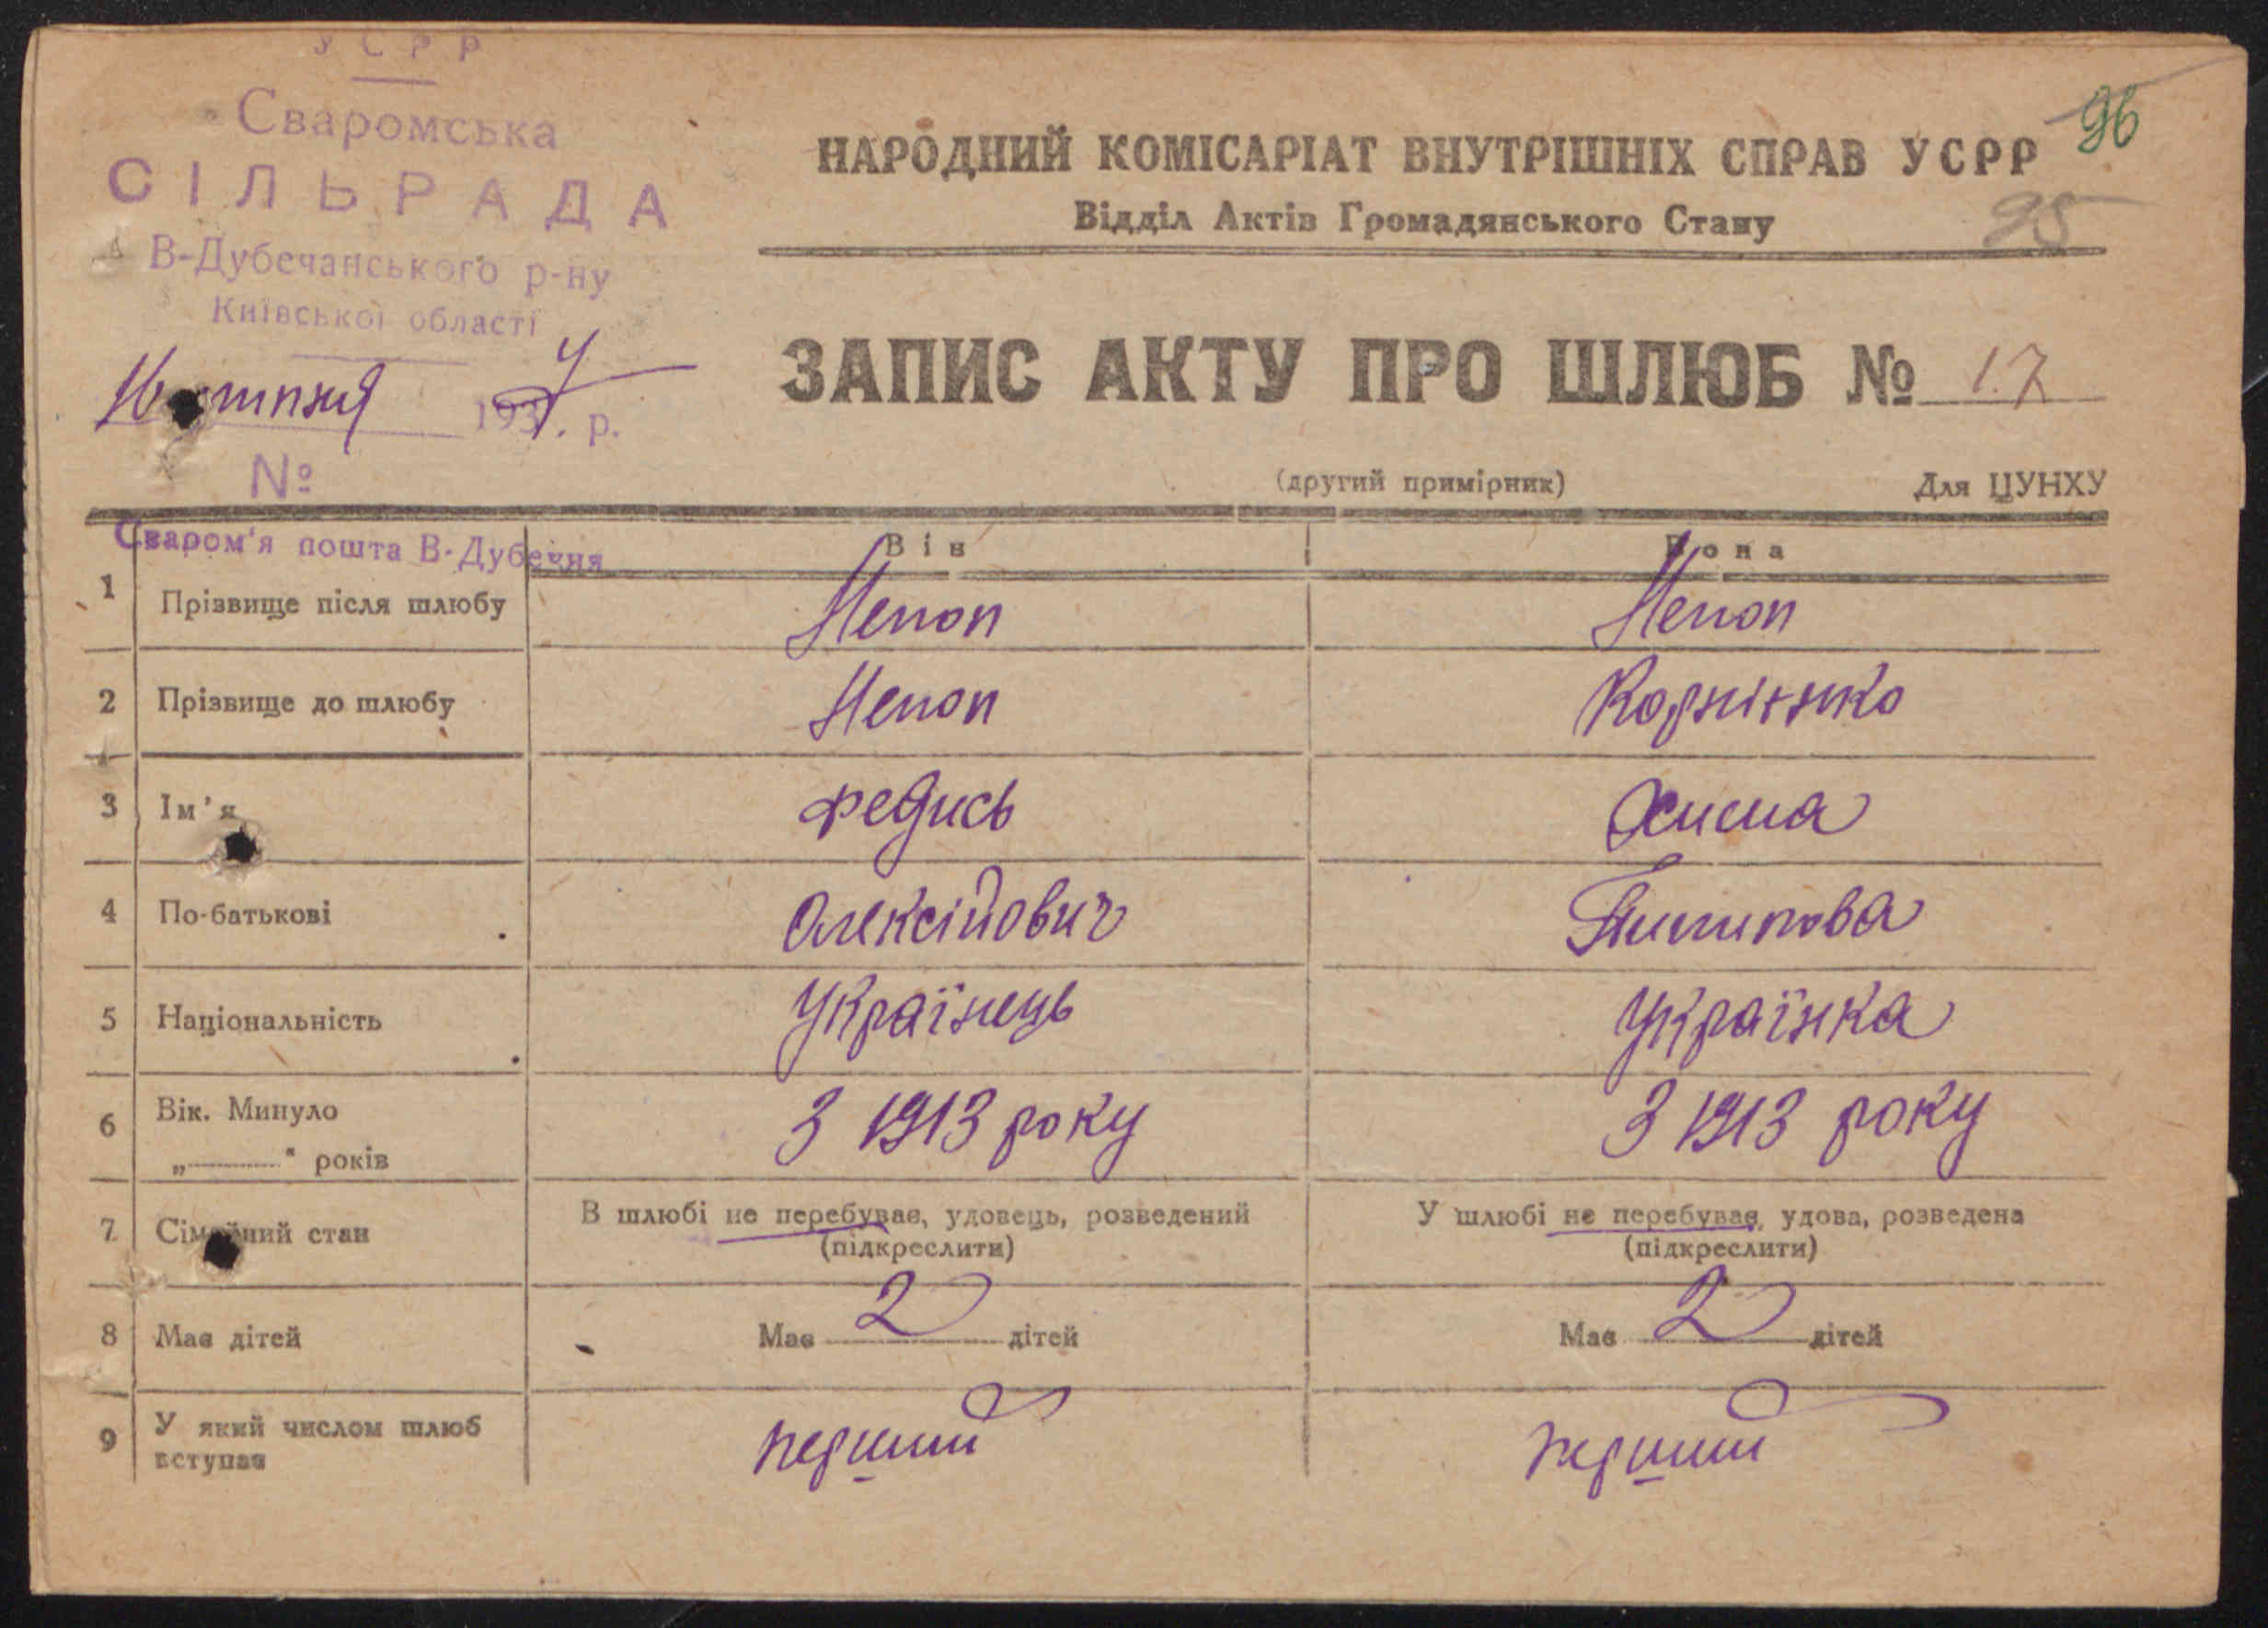 УСРР
Сваромська
СІЛЬРАДА
В-Дубечанського р-ну
Київської області
193 р.
№
96
НАРОДНИЙ КОМІСАРІАТ ВНУТРІШНІХ СПРАВ УСРР
95
Відділ Актів Громадянського Стану
ЗАПИС АКТУ ПРО ШЛЮБ № 17
(другий примірник) Для ЦУНХУ
Сваром'я пошта В-Дубечня
Він Вона
1 Прізвище після шлюбу Непоп Непоп
2 Прізвище до шлюбу Непоп Корнієнко
3 Ім'я Федись
4 По-батькові Олексійович Пилипова
5 Національність Українець Українка
6 Вік. Минуло „ “ років З 1913 року З 1913 року
7 Сімейний стан В шлюбі не перебуває, удовець, розведений У шлюбі не перебуває, удова, розведена
(підкреслити) (підкреслити)
8 Має дітей Має 2 дітей Має 2 дітей
9 У який числом шлюб вступає перший перший